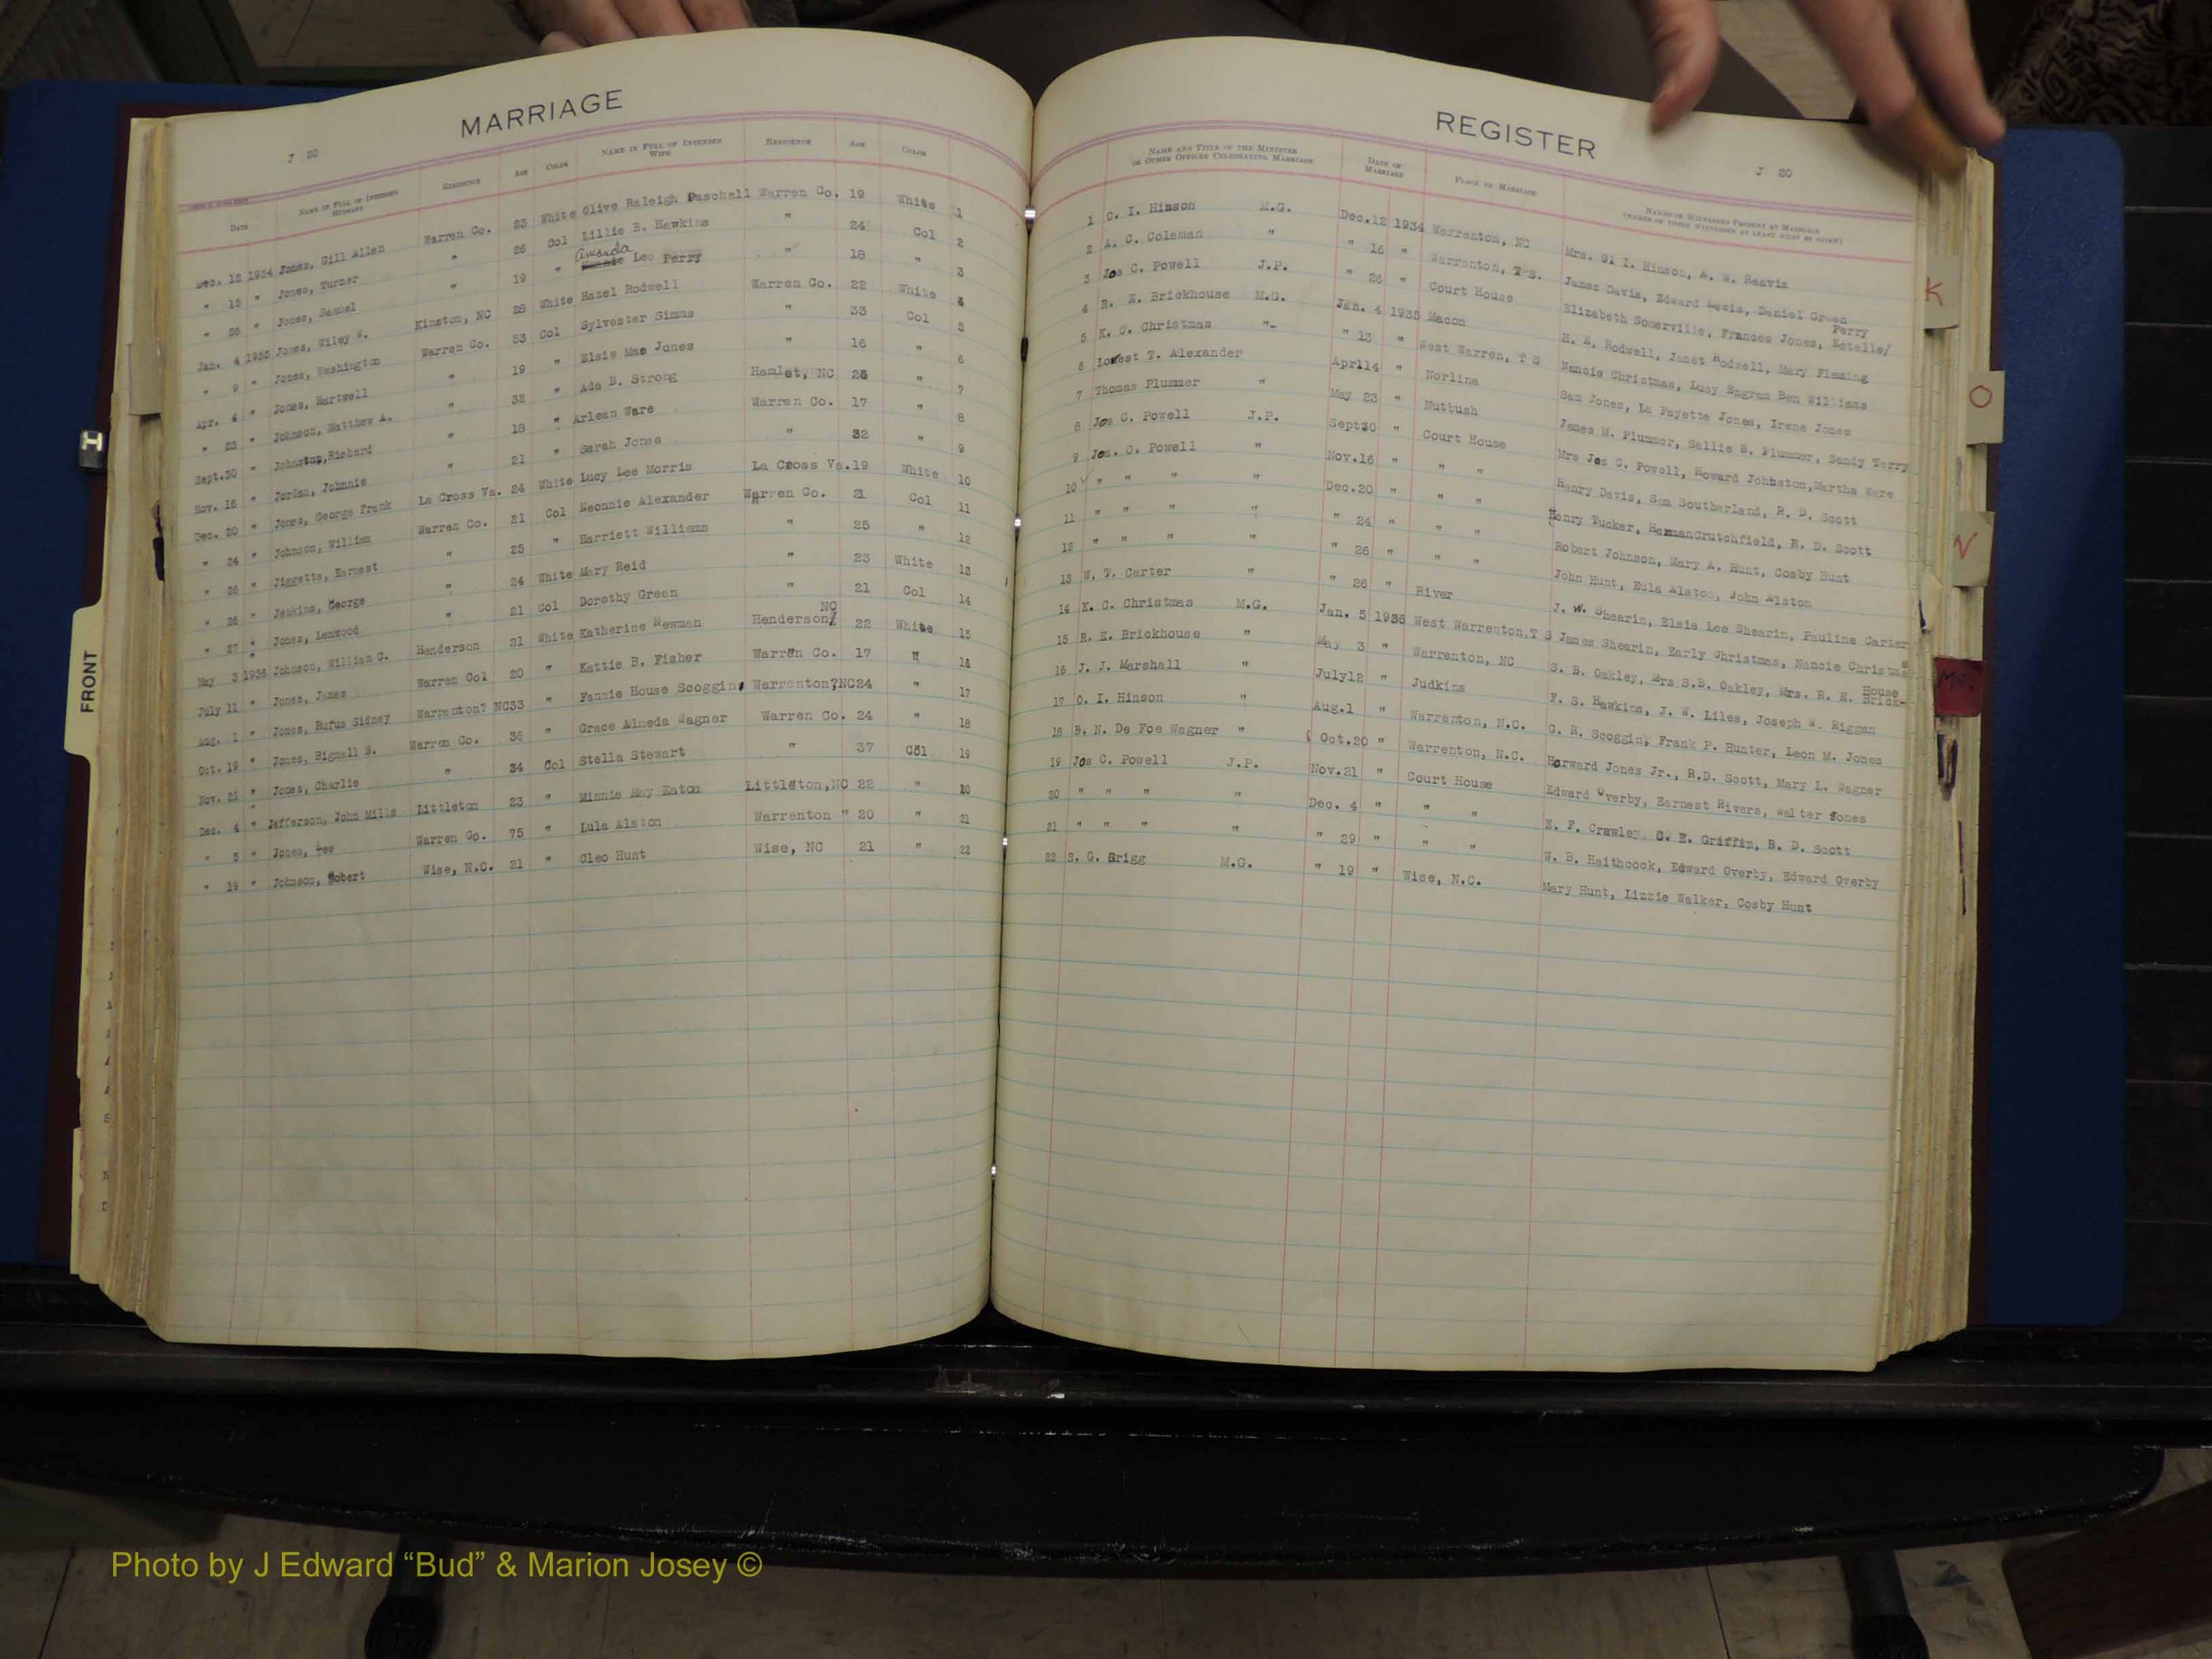 MARRIAGE
J 20
DATE NAME IN FULL OF INTENDED HUSBAND RESIDENCE AGE COLOR NAME IN FULL OF INTENDED WIFE RESIDENCE AGE COLOR
Dec. 12 1934 Jones, Gill Allen Warren Co. 23 White Olive Raleigh Paschall Warren Co. 19 White 1
" 15 " Jones, Turner " 26 Col Lillie B. Hawkins " 24 Col 2
" 26 " Jones, Samuel " 19 " Amanda Lee Perry " 18 " 3
Jan. 4 1935 Jones, Wiley W. Kinston, NC 28 White Hazel Rodwell Warren Co. 22 White 4
" 9 " Jones, Washington Warren Co. 53 Col Sylvester Simms " 33 Col 5
Apr. 4 " Jones, Hartwell " 19 " Elsie Mae Jones " 16 " 6
" 23 " Johnson, Matthew A. " 32 " Ada B. Strong Hamlet, NC 26 " 7
Sept.30 " Johnston,Richard " 18 " Arlean Ware Warren Co. 17 " 8
Nov. 16 " Jordan, Johnnie " 21 " Sarah Jones " 32 " 9
Dec. 20 " Jones, George Frank La Cross Va. 24 White Lucy Lee Morris La Cross Va.19 White 10
" 24 " Johnson, William Warren Co. 21 Col Neonnie Alexander Warren Co. 21 Col 11
" 26 " Jiggetts, Earnest " 25 " Harriett Williams " 25 " 12
" 26 " Jenkins, George " 24 White Mary Reid " 23 White 13
" 27 " Jones, Lenwood " 21 Col Dorothy Green " 21 Col 14
May 3 1936 Johnson, William G. Henderson 21 White Katherine Newman Henderson, NC 22 White 15
July 11 " Jones, James Warren Col 20 " Kattie B. Fisher Warren Co. 17 " 16
Aug. 1 " Jones, Rufus Sidney Warrenton? NC33 " Fannie House Scoggin, Warrenton?NC24 " 17
Oct. 19 " Jones, Bignall S. Warren Co. 36 " Grace Almeda Wagner Warren Co. 24 " 18
Nov. 21 " Jones, Charlie " 34 Col Stella Stewart " 37 Col 19
Dec. 4 " Jefferson, John Mills Littleton 23 " Minnie May Eaton Littleton,NC 22 " 20
" 5 " Jones, Lee Warren Co. 75 " Lula Alston Warrenton " 20 " 21
" 19 " Johnson, Robert Wise, N.C. 21 " Cleo Hunt Wise, NC 21 " 22
REGISTER
J 20
NAME AND TITLE OF THE MINISTER OR OTHER OFFICER CELEBRATING MARRIAGE DATE OF MARRIAGE PLACE OF MARRIAGE NAMES OF WITNESSES PRESENT AT MARRIAGE
(NAMES OF THREE WITNESSES AT LEAST MUST BE GIVEN)
1 O. I. Hinson M.G. Dec.12 1934 Warrenton, NC Mrs. O1 I. Hinson, A. W. Reavis
2 A. C. Coleman " " 16 " Warrenton, T S. James Davis, Edward Lewis, Daniel Green
3 Jos C. Powell J.P. " 26 " Court House Elizabeth Somerville, Frances Jones, Estelle/ Perry
4 R. E. Brickhouse M.G. Jan. 4 1935 Macon H. E. Rodwell, Janet Rodwell, Mary Fleming
5 K. C. Christmas "- " 13 " West Warren, T S Nancie Christmas, Lucy Engram Ben Williams
6 Lovest T. Alexander April4 " Norlina Sam Jones, La Fayette Jones, Irene Jones
7 Thomas Plummer " May 23 " Nutbush James M. Plummer, Sallie B. Plummer, Sandy Terry
8 Jos C. Powell J.P. Sept30 " Court House Mrs Jos C. Powell, Howard Johnston,Martha Ware
9 Jos. C. Powell " Nov.16 " " " Henry Davis, Sam Southerland, R. D. Scott
10 " " " " Dec.20 " " " Henry Tucker, HermanCrutchfield, R. D. Scott
11 " " " " " 24 " " " Robert Johnson, Mary A. Hunt, Cosby Hunt
12 " " " " " 26 " " " John Hunt, Eula Alston, John Alston
13 W. T. Carter " " 26 " River J. W. Shearin, Elsie Lee Shearin, Pauline Carter
14 K. C. Christmas M.G. Jan. 5 1936 West Warrenton,T S James Shearin, Early Christmas, Nancie Christmas
15 R. E. Brickhouse " May 3 " Warrenton, NC S. B. Oakley, Mrs S.B. Oakley, Mrs. R. E. Brick- House
16 J. J. Marshall " July12 " Judkins F. S. Hawkins, J. W. Liles, Joseph W. Riggan
17 O. I. Hinson " Aug.1 " Warrenton, N.C. G. R. Scoggin, Frank P. Hunter, Leon M. Jones
18 B. N. De Foe Wagner " Oct.20 " Warrenton, N.C. Horward Jones Jr., R.D. Scott, Mary L. Wagner
19 Jos C. Powell J.P. Nov.21 " Court House Edward Overby, Earnest Rivers, Walter Jones
20 " " " " Dec. 4 " " " E. F. Crawley, C. E. Griffin, R. D. Scott
21 " " " " " 29 " " " W. B. Haithcock, Edward Overby, Edward Overby
22 S. G. Grigg M.G. " 19 " Wise, N.C. Mary Hunt, Lizzie Walker, Cosby Hunt
FRONT
H
K
O
N
Mc.
Photo by J Edward “Bud” & Marion Josey ©